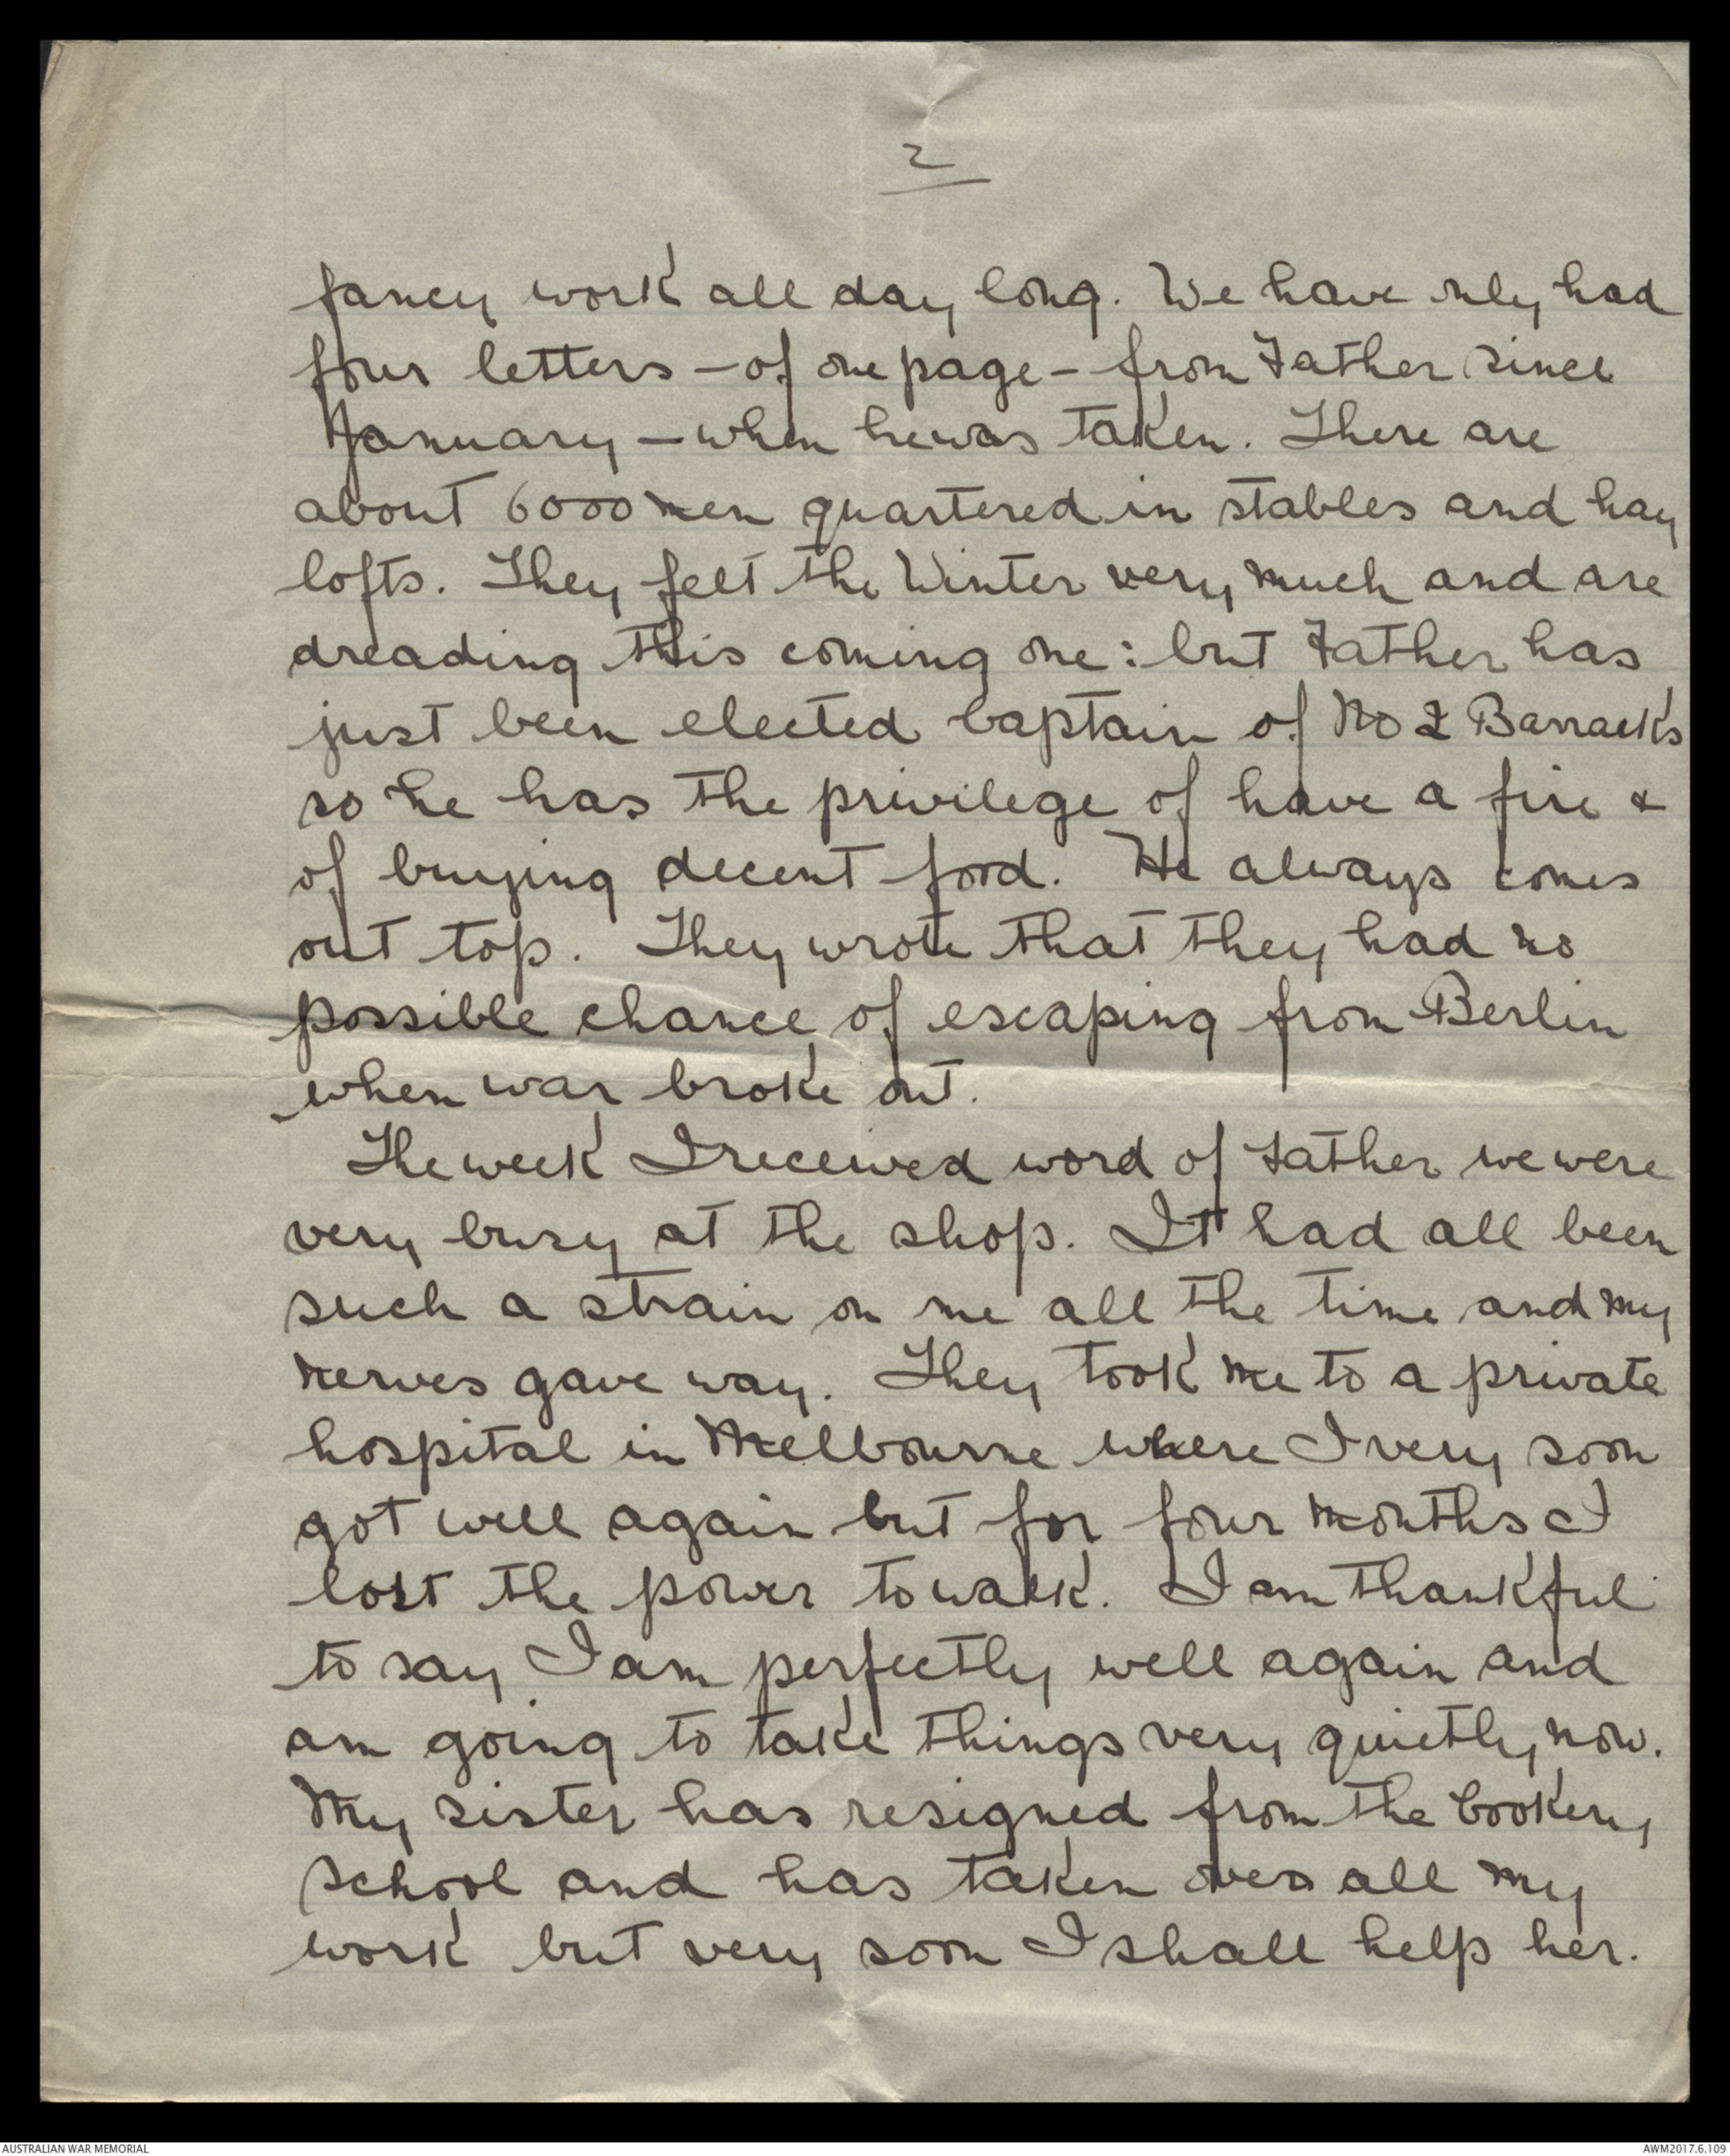 2
fancy work all day long. We have only had
four letters - of one page - from Father since
January - when he was taken. There are
about 6000 men quartered in stables and hay
lofts. They felt the Winter very much and are
dreading this coming one: but Father has
just been elected Captain of No 2 Barracks
so he has the privilege of have a fire &
of buying decent food. He always comes
out top. They wrote that they had no
possible chance of escaping from Berlin
when war broke out.
The week I received word of Father we were
very busy at the shop. It had all been
such a strain on me all the time and my
nerves gave way. They took me to a private
hospital in Melbourne where I very soon
got well again but for four months I
lost the power to walk. I am thankful
to say I am perfectly well again and
am going to take things very quietly now.
My sister has resigned from the Cookery
School and has taken over all my
work but very soon I shall help her.
AUSTRALIAN WAR MEMORIAL
AWM2017.6.109